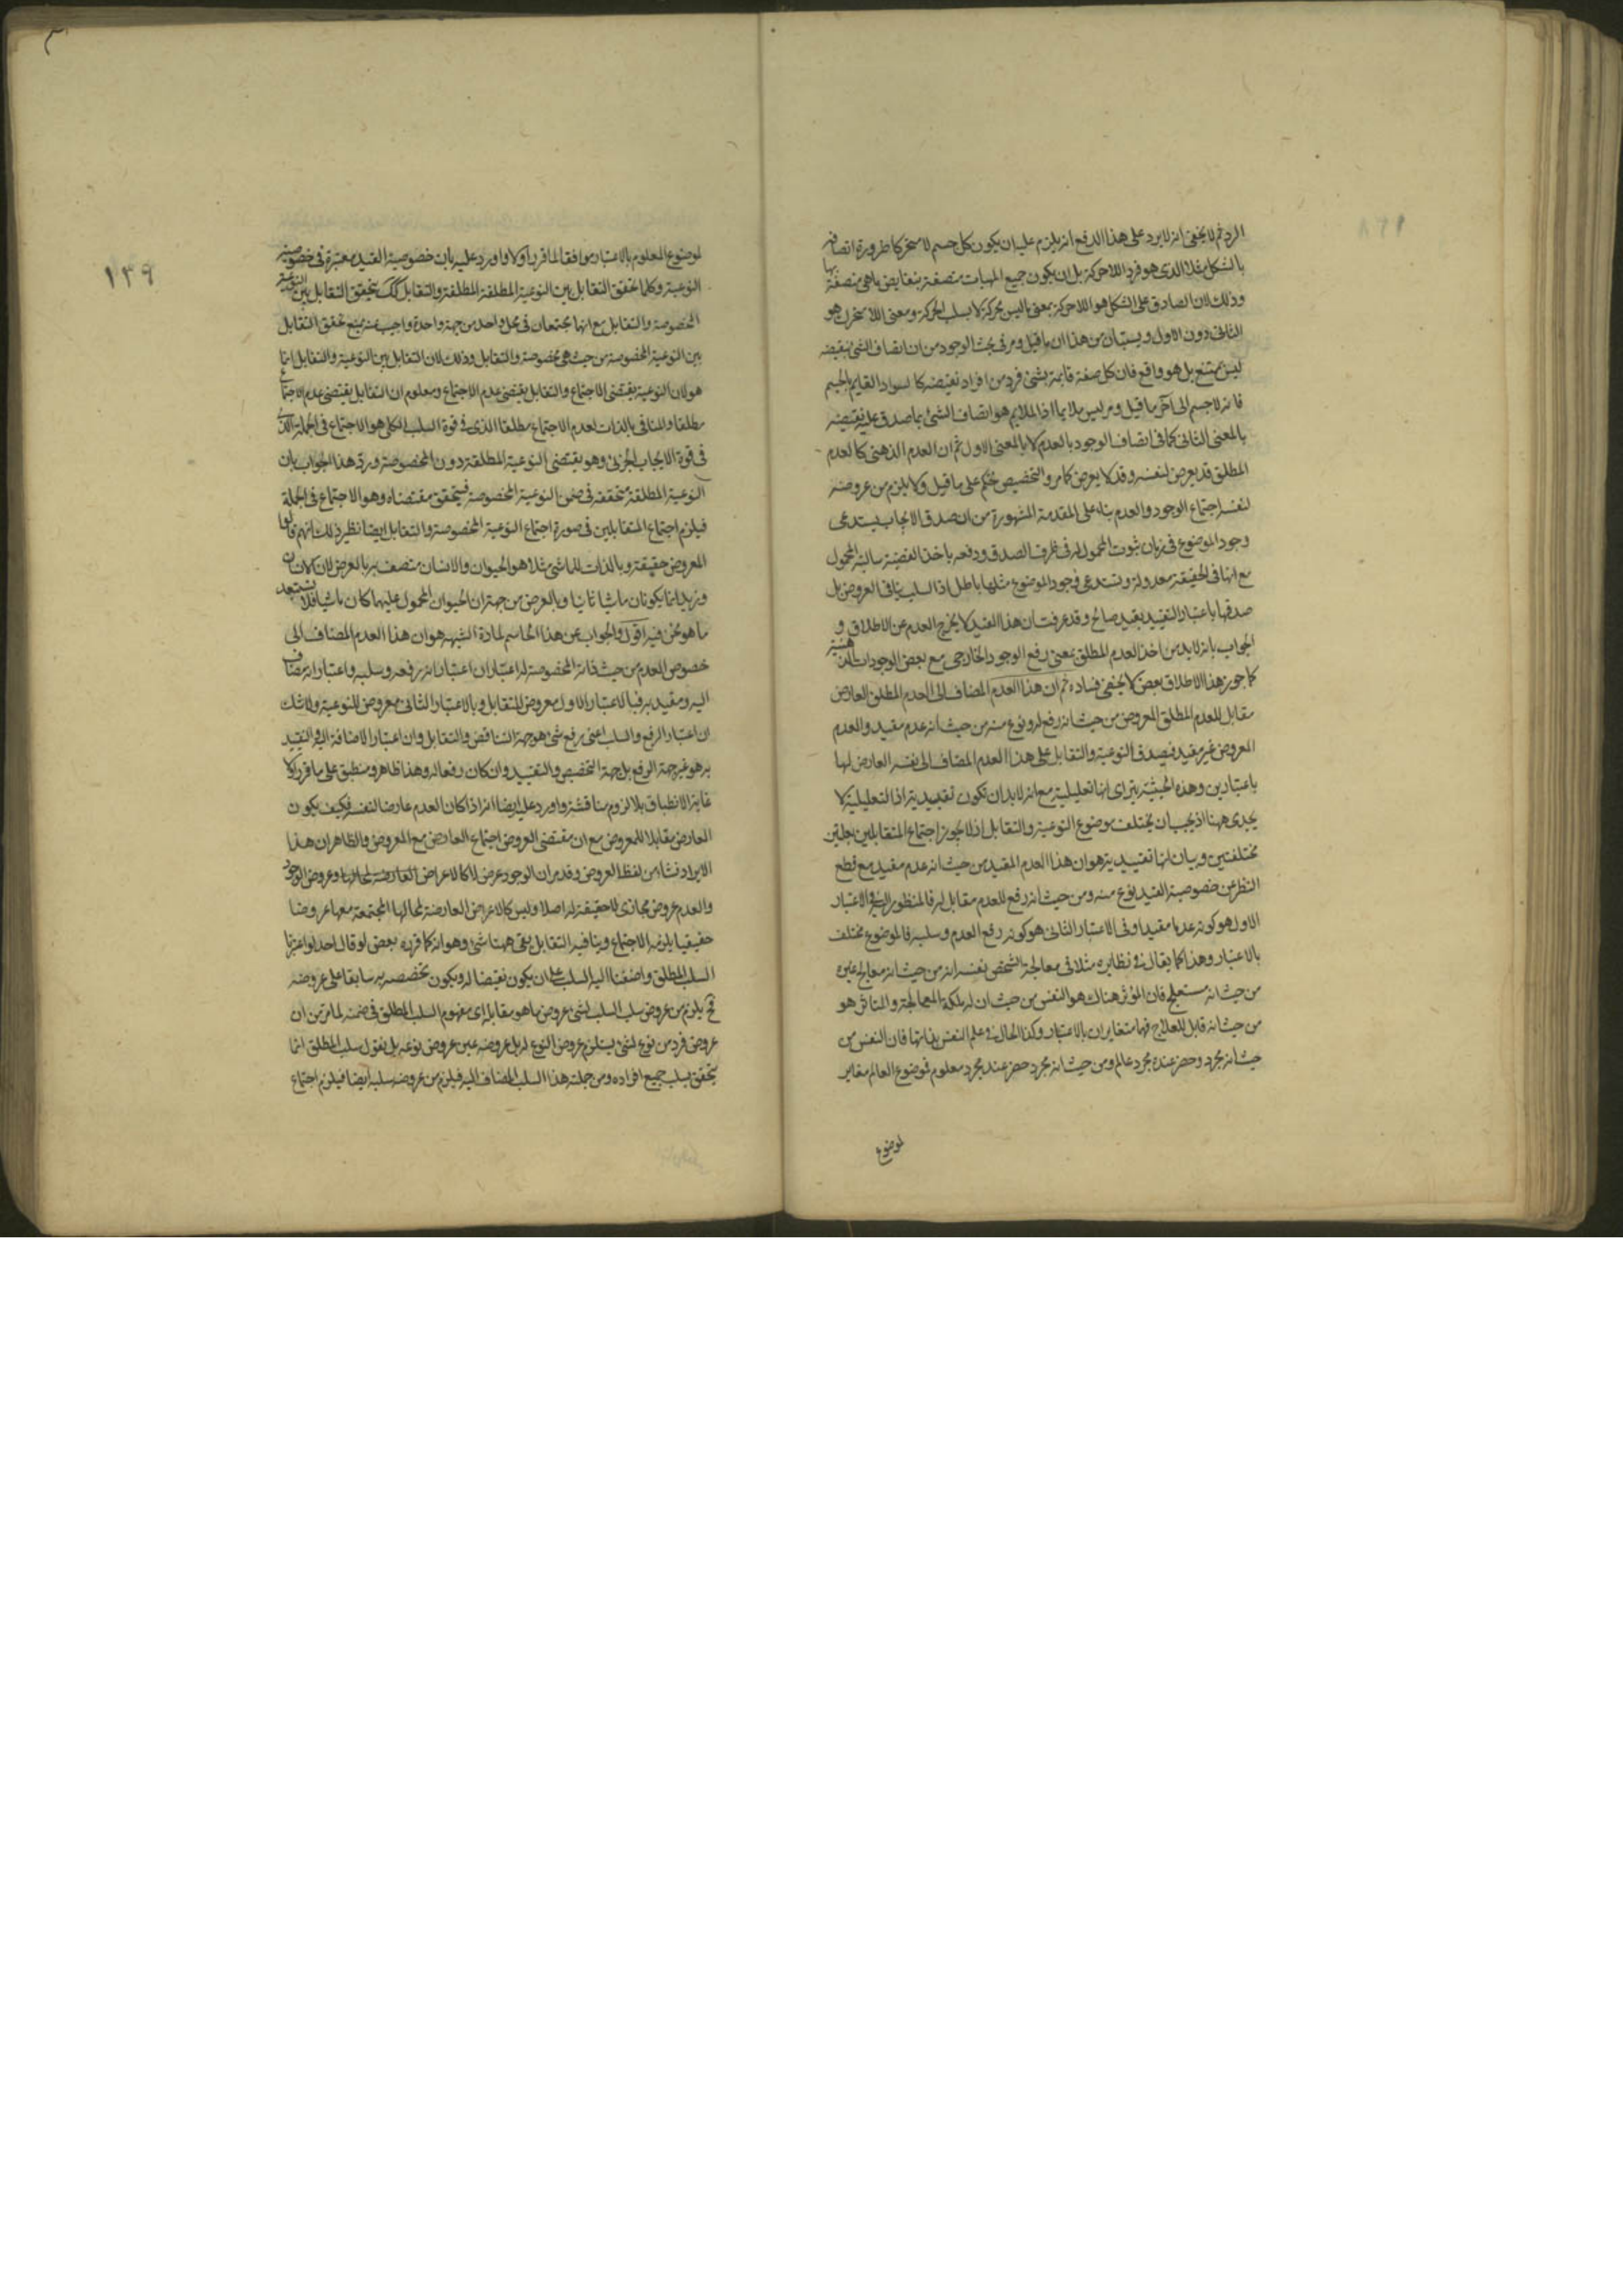 الرد ثم لا يخفى انه لا يرد على هذا الدفع انه يلزم عليه ان يكون كل جسم لا متحركا ضرورة اتصافه
بالشكل مثلا الذى هو فرد اللاحركة بل ان يكون جميع المهيات متصفة بنقايض ما هى متصفة بها
وذلك لان الصادق على الشكل هو اللاحركة بمعنى ما ليس بحركة لا بسلب الحركة ومعنى اللا متحرك هو
الثانى دون الاول ويستبان من هذا ان ما قيل ومر فى بحث الوجود من ان اتصاف الشئ بنقيضه
ليس بممتنع بل هو واقع فان كل صفة قايمة بشئ فرد من افراد نقيضه كالسواد القايم بالجسم
فانه لا جسم الى آخر ما قيل ومر ليس ملايما اذ الملايم هو اتصاف الشئ بما صدق عليه نقيضه
بالمعنى الثانى كما فى اتصاف الوجود بالعدم لا بالمعنى الاول ثم ان العدم الذهنى كالعدم
المطلق قد يعرض لنفسه وقد لا يعرض كما مر والتخصيص تحكم على ما قيل ولا يلزم من عروضه
لنفسه اجتماع الوجود والعدم بناء على المقدمة المشهورة من ان صدق الايجاب يستدعى
وجود الموضوع فى زمان ثبوت المحمول له فى ظرف الصدق ودفعه باخذ القضية سالبة المحمول
مع انها فى الحقيقة معدولة وتستدعى وجود الموضوع مثلها باطل اذ السلب ينافى العروض بل
صدقها باعتبار التقييد بقيد صالح وقد عرفت ان هذا القيد لا يخرج العدم عن الاطلاق و
الجواب بانه لا بد من اخذ العدم المطلق بمعنى رفع الوجود الخارجى مع بعض الوجودات الذهنية
كما جوز هذا الاطلاق بعض لا يخفى فساده ثم ان هذا العدم المضاف الى العدم المطلق العارض
مقابل للعدم المطلق المعروض من حيث انه رفع له ونوع منه من حيث انه عدم مقيد والعدم
المعروض غير مقيد فيصدق النوعية والتقابل على هذا العدم المضاف الى نفسه العارض لها
باعتبارين وهذه الحيثية يتراى انها تعليلية مع انه لا بد ان تكون تقييدية اذ التعليلية لا
يجدى ههنا اذ يجب ان يختلف موضوع النوعية والتقابل اذ لا يجوز اجتماع المتقابلين بعلتين
مختلفتين وبيان انها تقييدية هو ان هذا العدم المقيد من حيث انه عدم مقيد مع قطع
النظر عن خصوصية القيد نوع منه ومن حيث انه رفع للعدم مقابل له فالمنظور اليه فى الاعتبار
الاول هو كونه عدما مقيدا وفى الاعتبار الثانى هو كونه رفع العدم وسلبه فالموضوع مختلف
بالاعتبار وهذا كما يقال فى نظايره مثلا فى معالجة الشخص نفسه انه من حيث انه معالج غيره
من حيث انه مستعلج فان المؤثر هناك هو النفس من حيث ان له ملكة المعالجة والمتاثر هو
من حيث انه قابل للعلاج فهما متغايران بالاعتبار وكذا الحال فى علم النفس بذاتها فان النفس من
حيث انه مجرد وحضر عنده مجرد عالم ومن حيث انه مجرد حضر عند مجرد معلوم فموضوع العالم مغاير
لموضوع
١٣٩
لموضوع المعلوم بالاعتبار موافقا لما قرر اولا واورد عليه بان خصوصية القيد معتبرة فى خصوصية
النوعية وكلما تحقق التقابل بين النوعية المطلقة والتقابل كك يتحقق التقابل بين النوعية
المخصوصة والتقابل مع انهما يجتمعان فى محل واحد من جهة واحدة واجيب عنه بمنع تحقق التقابل
بين النوعية المخصوصة من حيث هى مخصوصة والتقابل وذلك لان التقابل بين النوعية والتقابل انما
هو لان النوعية يقتضى الاجتماع والتقابل يقتضى عدم الاجتماع ومعلوم ان التقابل يقتضى عدم الاجتماع
مطلقا والمنافى بالذات لعدم الاجتماع مطلقا الذى فى قوة السلب الكلى هو الاجتماع فى الجملة الذى
فى قوة الايجاب الجزئى وهو يقتضى النوعية المطلقة دون المخصوصة ورد هذا الجواب بان
النوعية المطلقة متحققة فى ضمن النوعية المخصوصة فيتحقق مقتضاه وهو الاجتماع فى الجملة
فيلزم اجتماع المتقابلين فى صورة اجتماع النوعية المخصوصة والتقابل ايضا نظير ذلك انهم قالوا
المعروض حقيقة وبالذات للماشى مثلا هو الحيوان والانسان متصف به بالعرض لان
وزيد انما يكونان ماشيا ثانيا وبالعرض من جهة ان الحيوان المحمول عليهما كان ماشيا فلا تستبعد
ما نحن فيه اقول والجواب عن هذا الحاسم لمادة الشبهه هو ان هذا العدم المضاف الى
خصوص العدم من حيث ذاته المخصوصة له اعتباران اعتبار انه رفعه وسلبه واعتبار انه مضاف
اليه ومقيد به فبالاعتبار الاول معروض للتقابل وبالاعتبار الثانى معروض للنوعية ولا شك
ان اعتبار الرفع والسلب اعنى رفع شئ هو جهة التناقض والتقابل وان اعتبار الاضافة اليه والتقييد
به هو غير جهة الرفع بل جهة التخصيص والتقييد وان كان رفعا له وهذا ظاهر ومنطبق على ما قرر اولا
غاية الانطباق بلا لزوم مناقشة واورد عليه ايضا انه اذا كان العدم عارضا لنفسه فكيف يكون
العارض مقابلا للمعروض مع ان مقتضى العروض اجتماع العارض مع المعروض والظاهر ان هذا
الايراد نشاء من لفظ العروض وقد مر ان الوجود عرض لا كالاعراض العارضة لمحالها وعروض الوجود
والعدم عروض مجازى لا حقيقة له اصلا وليس كالاعراض العارضة لمحالها المجتمعة معها عروضا
حقيقيا يلزمه الاجتماع وينافيه التقابل بقى ههنا شئ وهو انه كما قرره بعض لو قال احد لو اعتبرنا
السلب المطلق واضفنا اليه السلب على ان يكون نقيضا له ويكون تخصصه به سابقا على عروضه
فح يلزم من عروض سلب السلب لشئ عروض ما هو مقابله اى مفهوم السلب المطلق فى ضمنه لما مر من ان
عروض فرد من نوع لشئ يستلزم عروض النوع له بل عروضه عين عروض نوعه بل نقول سلب المطلق انما
يتحقق بسلب جميع افراده ومن جملته هذا السلب المضاف اليه فيلزم من عروضه سلبه ايضا فيلزم اجتماع